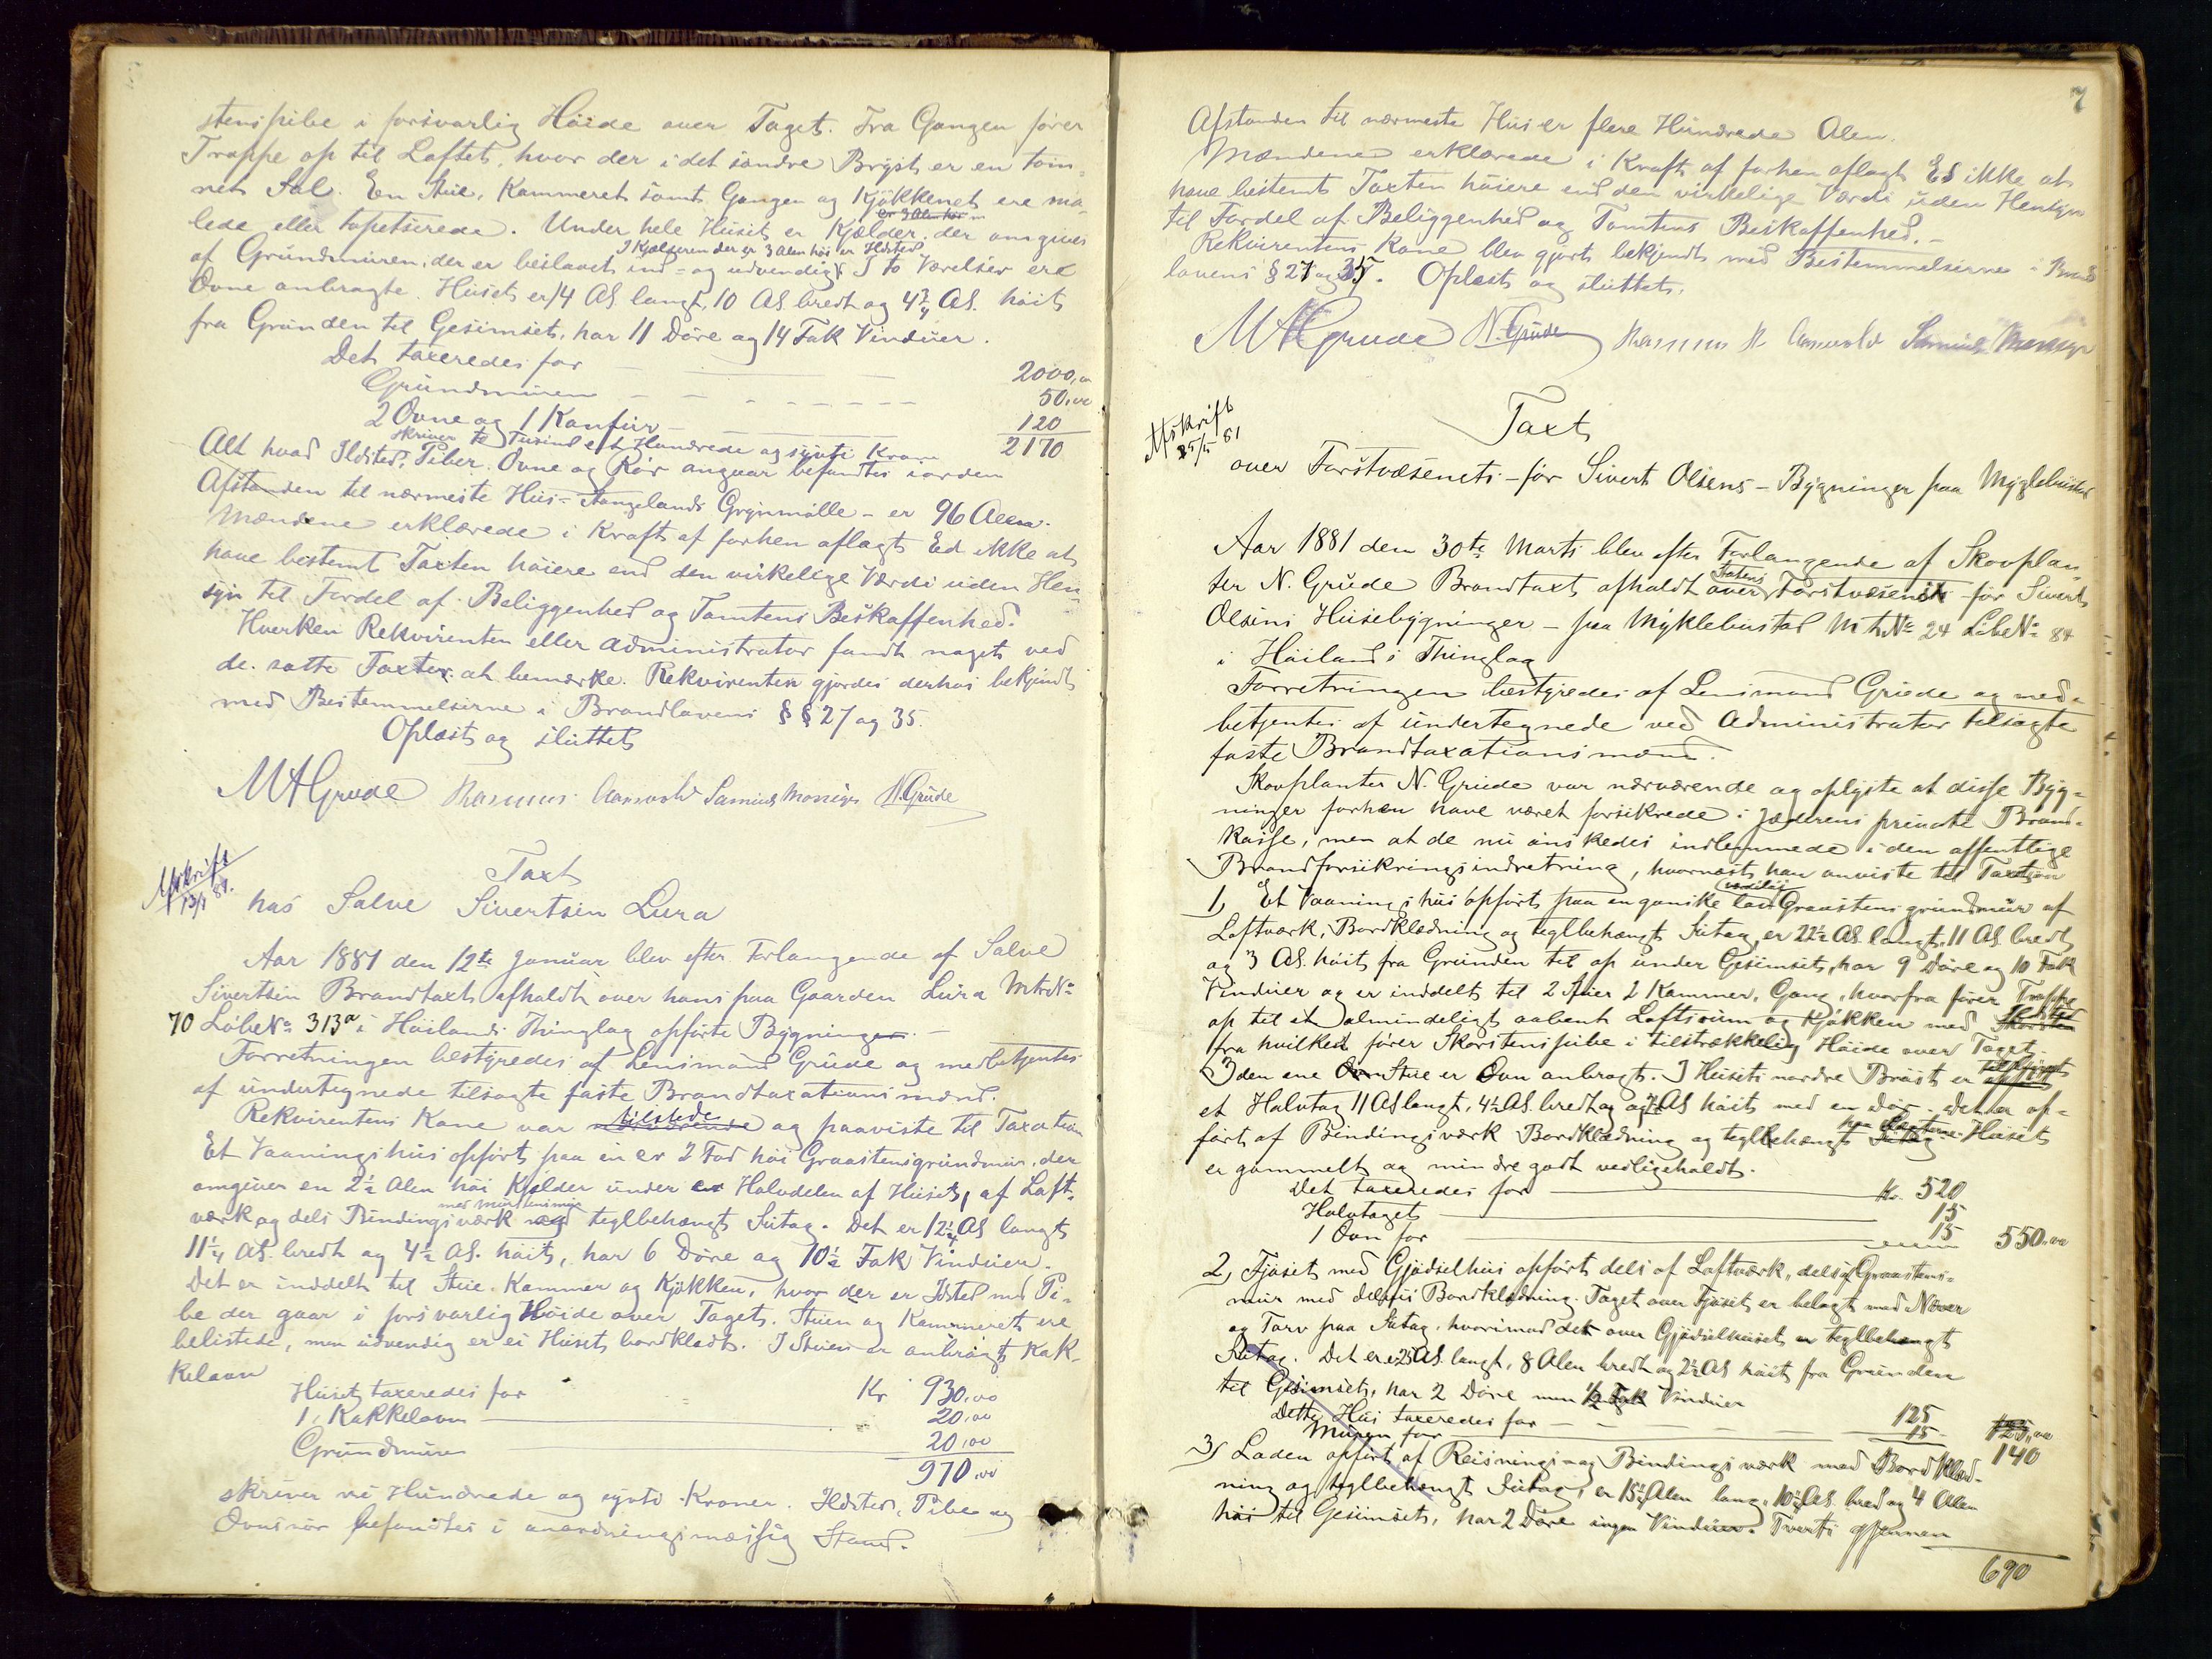 stenspibe i forsvarlig Høide over Taget. Fra Gangen fører
Trappe op til Loftet, hvor der i det søndre Bryst er en tøm-
ret Sal. En Stue, Kammeret samt Gangen og Kjøkkenet ere ma-
lede eller tapetserede. Under hele Huset er Kjælder, der omgives
I Kjelderen der er 3 Alen høi er Ildsted
af Grundmuren, der er beslaaet ind- og udvendig. I to Værelser ere
Ovne anbragte. Huset er 14 Al. langt, 10 Al. bredt og 4 3/4 Al. høit
fra Grunden til Gesimset, har 11 Døre og 14 Fak Vinduer.
Det taxeredes for 2000,00
Grundmuren 50,00
2 Ovne og 1 Komfur 120
2170
skriver to Tusind et Hundrede og sytti Kroner
Alt hvad Ildsted, Piber, Ovne og Rør angaar befandtes i orden
Afstanden til nærmeste Hus - Stangelands Grynmølle - er 96 Alen.
Mændene erklærede i Kraft af forhen aflagt Ed ikke at
have bestemt Taxten høiere end den virkelige Værdi uden Hen-
syn til Fordel af Beliggenhed og Tomtens Beskaffenhed.
Hverken Rekvirenten eller Administrator fandt noget ved
de satte Taxter at bemærke. Rekvirenten gjordes derhos bekjendt
med Bestemmelserne i Brandlovens §§ 27 og 35.
Oplæst og sluttet
M A Grude Rasmus Aanevold N. Grude
Afskrift
13/1 81.
Taxt
hos Salve Sivertsen Lura
Aar 1881 den 12te Januar blev efter Forlangende af Salve
Sivertsen Brandtaxt afholdt over hans paa Gaarden Lura Mtr No
70 Løbe No 313a i Høilands Thinglag opførte Bygninger. -
Forretningen bestyredes af Lensmand Grude og medbetjentes
af undertegnede tilsagte faste Brandtaxationsmænd.
tilstede
Rekvirentens Kone var nærværende og paaviste til Taxation
Et Vaaningshus opført paa en 2 Fod høi Graastensgrundmur, der
omgiver en 2 1/2 Alen høi Kjelder under Halvdelen af Huset, af Loft-
værk og dels Bindingsværk med teglbehængt Sutag. Det er 12 1/4 Al langt
11 1/4 Al. bredt og 4 1/2 Al. høit, har 6 Døre og 10 1/2 Fak Vinduer.
Det er inddelt til Stue, Kammer og Kjøkken, hvor der er Ildsted med Pi-
be der gaar i forsvarlig Høide over Taget. Stuen og Kammeret ere
belistede, men udvendig er ei Huset bordklædt. I Stuen er anbragt Kak-
kelovn
Huset taxeredes for Kr 930,00
1 Kakkelovn 20,00
Grundmuren 20,00
970,00
skriver ni Hundrede og sytti Kroner. Ildsted, Pibe og
Ovnsrør befandtes i anordningsmæssig Stand.
7
Afstanden til nærmeste Hus er flere Hundrede Alen.
Mændene erklærede i Kraft af forhen aflagt Ed ikke at
have bestemt Taxten høiere end den virkelige Værdi uden Hensyn
til Fordel af Beliggenhed og Tomtens Beskaffenhed. -
Rekvirentens Kone blev gjort bekjendt med Bestemmelserne i Brand
lovens § 27 og 35. Oplæst og sluttet.
M A Grude N. Grude Rasmus Aanevold
Afskrift
25/5 81
Taxt
over Forstvæsenets - før Sivert Olsens - Bygninger paa Myklebustad
Aar 1881 den 30te Marts blev efter Forlangende af Skovplan-
ter N. Grude Brandtaxt afholdt over Statens Forstvæsenets - før Sivert
Olsens Husebygninger - paa Myklebustad Mtr No 24 Løbe No 84
i Høilands Thinglag
Forretningen bestyredes af Lensmand Grude og med-
betjentes af undertegnede ved Administrator tilsagte
faste Brandtaxationsmænd.
Skovplanter N. Grude var nærværende og oplyste at disse Byg-
ninger forhen have været forsikrede i Jæderens private Brand-
kasse, men at de nu ønskedes indlemmede i den offentlige
Brandforsikringsindretning, hvornæst han anviste til Taxation
1, Et Vaaningshus opført paa en ganske lav Graastensgrundmur af
Loftværk, Bordklædning og teglbehængt Sutag, er 22 1/2 Al langt, 11 Al. bredt
og 3 Al. høit fra Grunden til op under Gesimset, har 9 Døre og 10 Fak
Vinduer og er inddelt til 2 Stuer 2 Kammer, Gang, hvorfra fører Trappe
op til et almindeligt aabent Loftsrum og Kjøkken med Ildsted
fra hvilket fører Skorstenspibe i tilstrækkelig Høide over Taget.
I den ene Stue er Ovn anbragt. I Husets nordre Bryst er tilføjet
et Halvtag 11 Al langt, 4 1/2 Al. bredt og Al høit med en Dør. Det er op-
ført af Bindingsværk Bordklædning og teglbehængt Sutag. Huset
er gammelt og mindre godt vedligeholdt.
Det taxeredes for Kr. 520
Halvtaget 15
1 Ovn for 15 550,00
2, Fjøset med Gjødselhus opført dels af Loftværk, dels af Graastens-
mur med delvis Bordklædning. Taget over Fjøset er belagt med Næver
og Torv paa Sutag, hvorimod det over Gjødselhuset er teglbehængt
Sutag. Det er 25 Al. langt, 8 Alen bredt og 2 1/2 Al høit fra Grunden
til Gesimset, har 2 Døre men 1/2 Fak Vinduer
Dette Hus taxeredes for 125
Muren for 15 140
3, Laden opført af Reisnings- og Bindingsværk med Bordklæd-
ning og teglbehængt Sutag, er 15 1/2 Alen lang, 10 1/2 Al. bred og 4 Alen
høi til Gesimset, har 2 Døre ingen Vinduer. Tverts gjennem
690